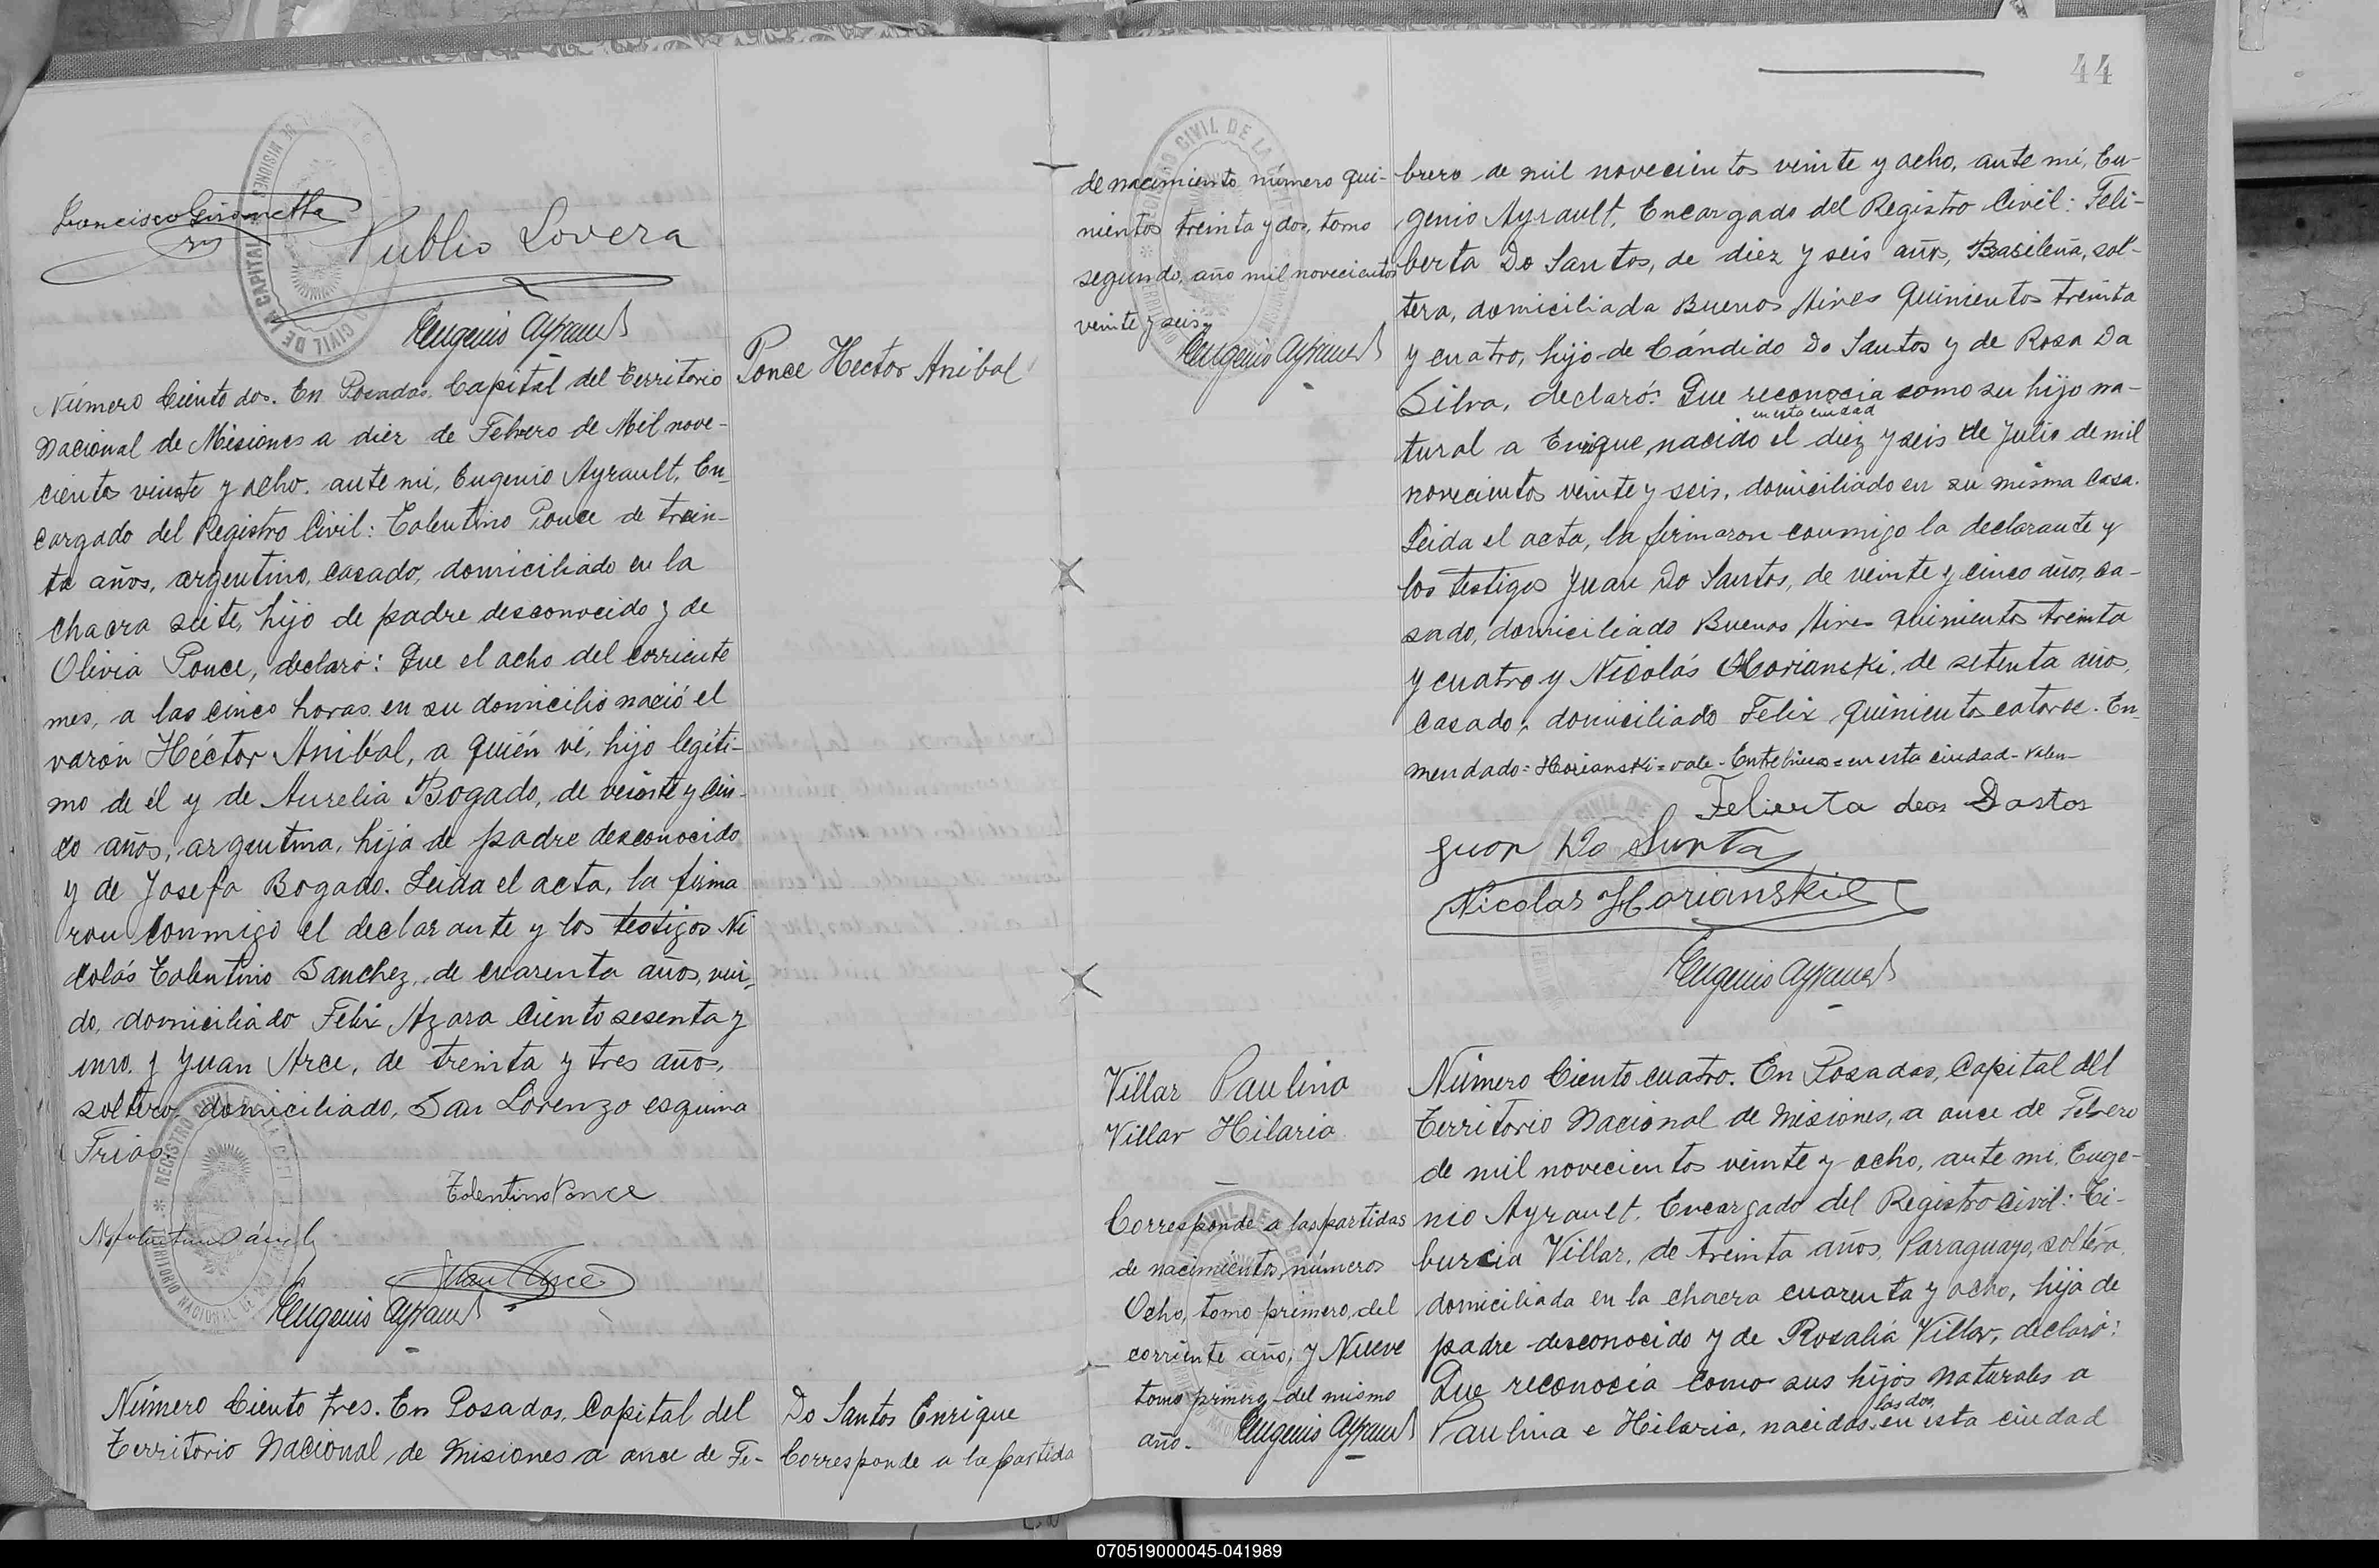 Francisco Gironetta
Publio Lovera
Eugenio Ayrault
Número Ciento dos. En Posadas, Capital del Territorio
Nacional de Misiones a diez de Febrero de Mil nove-
cientos veinte y ocho, ante mi, Eugenio Ayrault, En-
cargado del Registro Civil: Tolentino Ponce de trein-
ta años, argentino, casado, domiciliado en la
chacra siete, hijo de padre desconocido y de
Olivia Ponce, declaró: Que el ocho del corriente
mes, a las cinco horas en su domicilio nació el
varón Héctor Anibal, a quién ví, hijo legíti-
mo de él y de Aurelia Bogado, de veinte y cin-
co años, argentina, hija de padre desconocido
y de Josefa Bogado. Leida el acta, la firma
ron conmigo el declarante y los testigos Ni
colás Tolentino Sanchez, de cuarenta años, viu-
do, domiciliado Felix Azara Ciento sesenta y
uno, y Juan Arce, de treinta y tres años,
soltero, domiciliado, San Lorenzo esquina
Frias.
Tolentino Ponce
Juan Arce
Eugenio Ayrault
Número Ciento tres. En Posadas, Capital del
Territorio Nacional de Misiones a once de Fe-
Ponce Hector Anibal
Do Santos Enrique
Corresponde a la partida
44
de nacimiento número qui-
nientos treinta y dos, tomo
segundo, año mil novecientos
veinte y seis.
Eugenio Ayrault
brero de mil novecientos veinte y ocho, ante mi, Eu-
genio Ayrault, Encargado del Registro Civil: Feli-
berta Do Santos, de diez y seis años, Brasileña, sol-
tera, domiciliada Buenos Aires Quinientos treinta
y cuatro, hijo de Cándido Do Santos y de Rosa Da
Silva, declaró: Que reconocia como su hijo na-
en esta ciudad
tural a Enrique, nacido el diez y seis de Julio de mil
novecientos veinte y seis, domiciliado en su misma casa.
Leida el acta, la firmaron conmigo la declarante y
los testigos Juan Do Santos, de veinte y cinco años, ca-
sado, domiciliado Buenos Aires Quinientos treinta
y cuatro y Nicolás Horianski, de setenta años,
casado, domiciliado Felix, quinientos catorce. En-
mendado=Horianski=vale-Entelineas=en esta ciudad-Valen-
Felierta deos Dastos
Juan Do Santos
Nicolas Horianskie
Eugenio Ayrault
Villar Paulina
Villar Hilaria
Corresponde a las partidas
de nacimientos, números
Ocho, tomo primero, del
corriente año, y Nueve
tomo primero, del mismo
año.
Eugenio Ayrault
Número Ciento cuatro. En Posadas, Capital del
Territorio Nacional de Misiones, a once de Febrero
de mil novecientos veinte y ocho, ante mi, Euge-
nio Ayrault, Encargado del Registro Civil: Ti-
burcia Villar, de treinta años, Paraguaya, soltera,
domiciliada en la chacra cuarenta y ocho, hija de
padre desconocido y de Rosalia Villar, declaró:
Que reconocia como sus hijos naturales a
las dos
Paulina e Hilaria, nacidas en esta ciudad
070519000045-041989